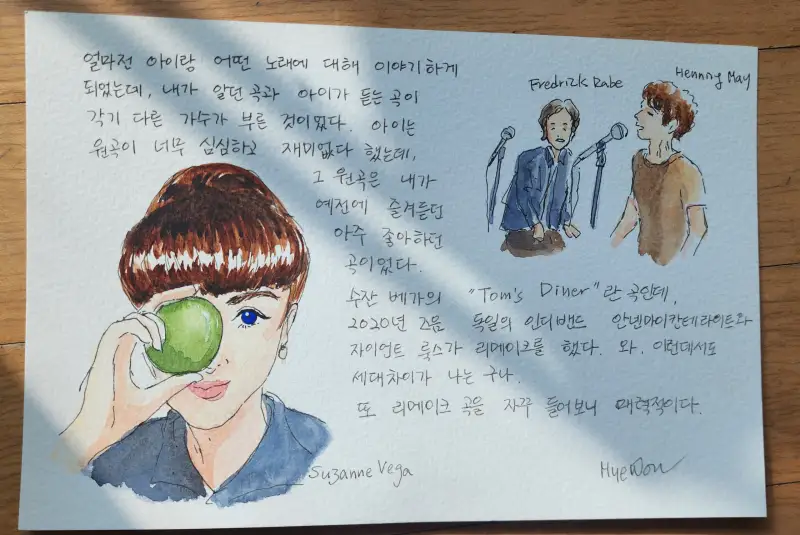 얼마전 아이랑 어떤 노래에 대해 이야기하게
되었는데, 내가 알던 곡과 아이가 듣는 곡이
각기 다른 가수가 부른 것이었다. 아이는
원곡이 너무 심심하고 재미없다 했는데,
그 원곡은 내가
예전에 즐겨듣던
아주 좋아하던
곡이었다.
수잔 베가의 "Tom's Diner"란 곡인데,
2020년 즈음 독일의 인디밴드 안넨마이칸테라이트와
자이언트 룩스가 리메이크를 했다. 와, 이런데서도
세대차이가 나는 구나.
또 리메이크 곡을 자꾸 들어보니 매력적이다.
Fredrick Rabe
Henning May
Suzanne Vega
HyeWon